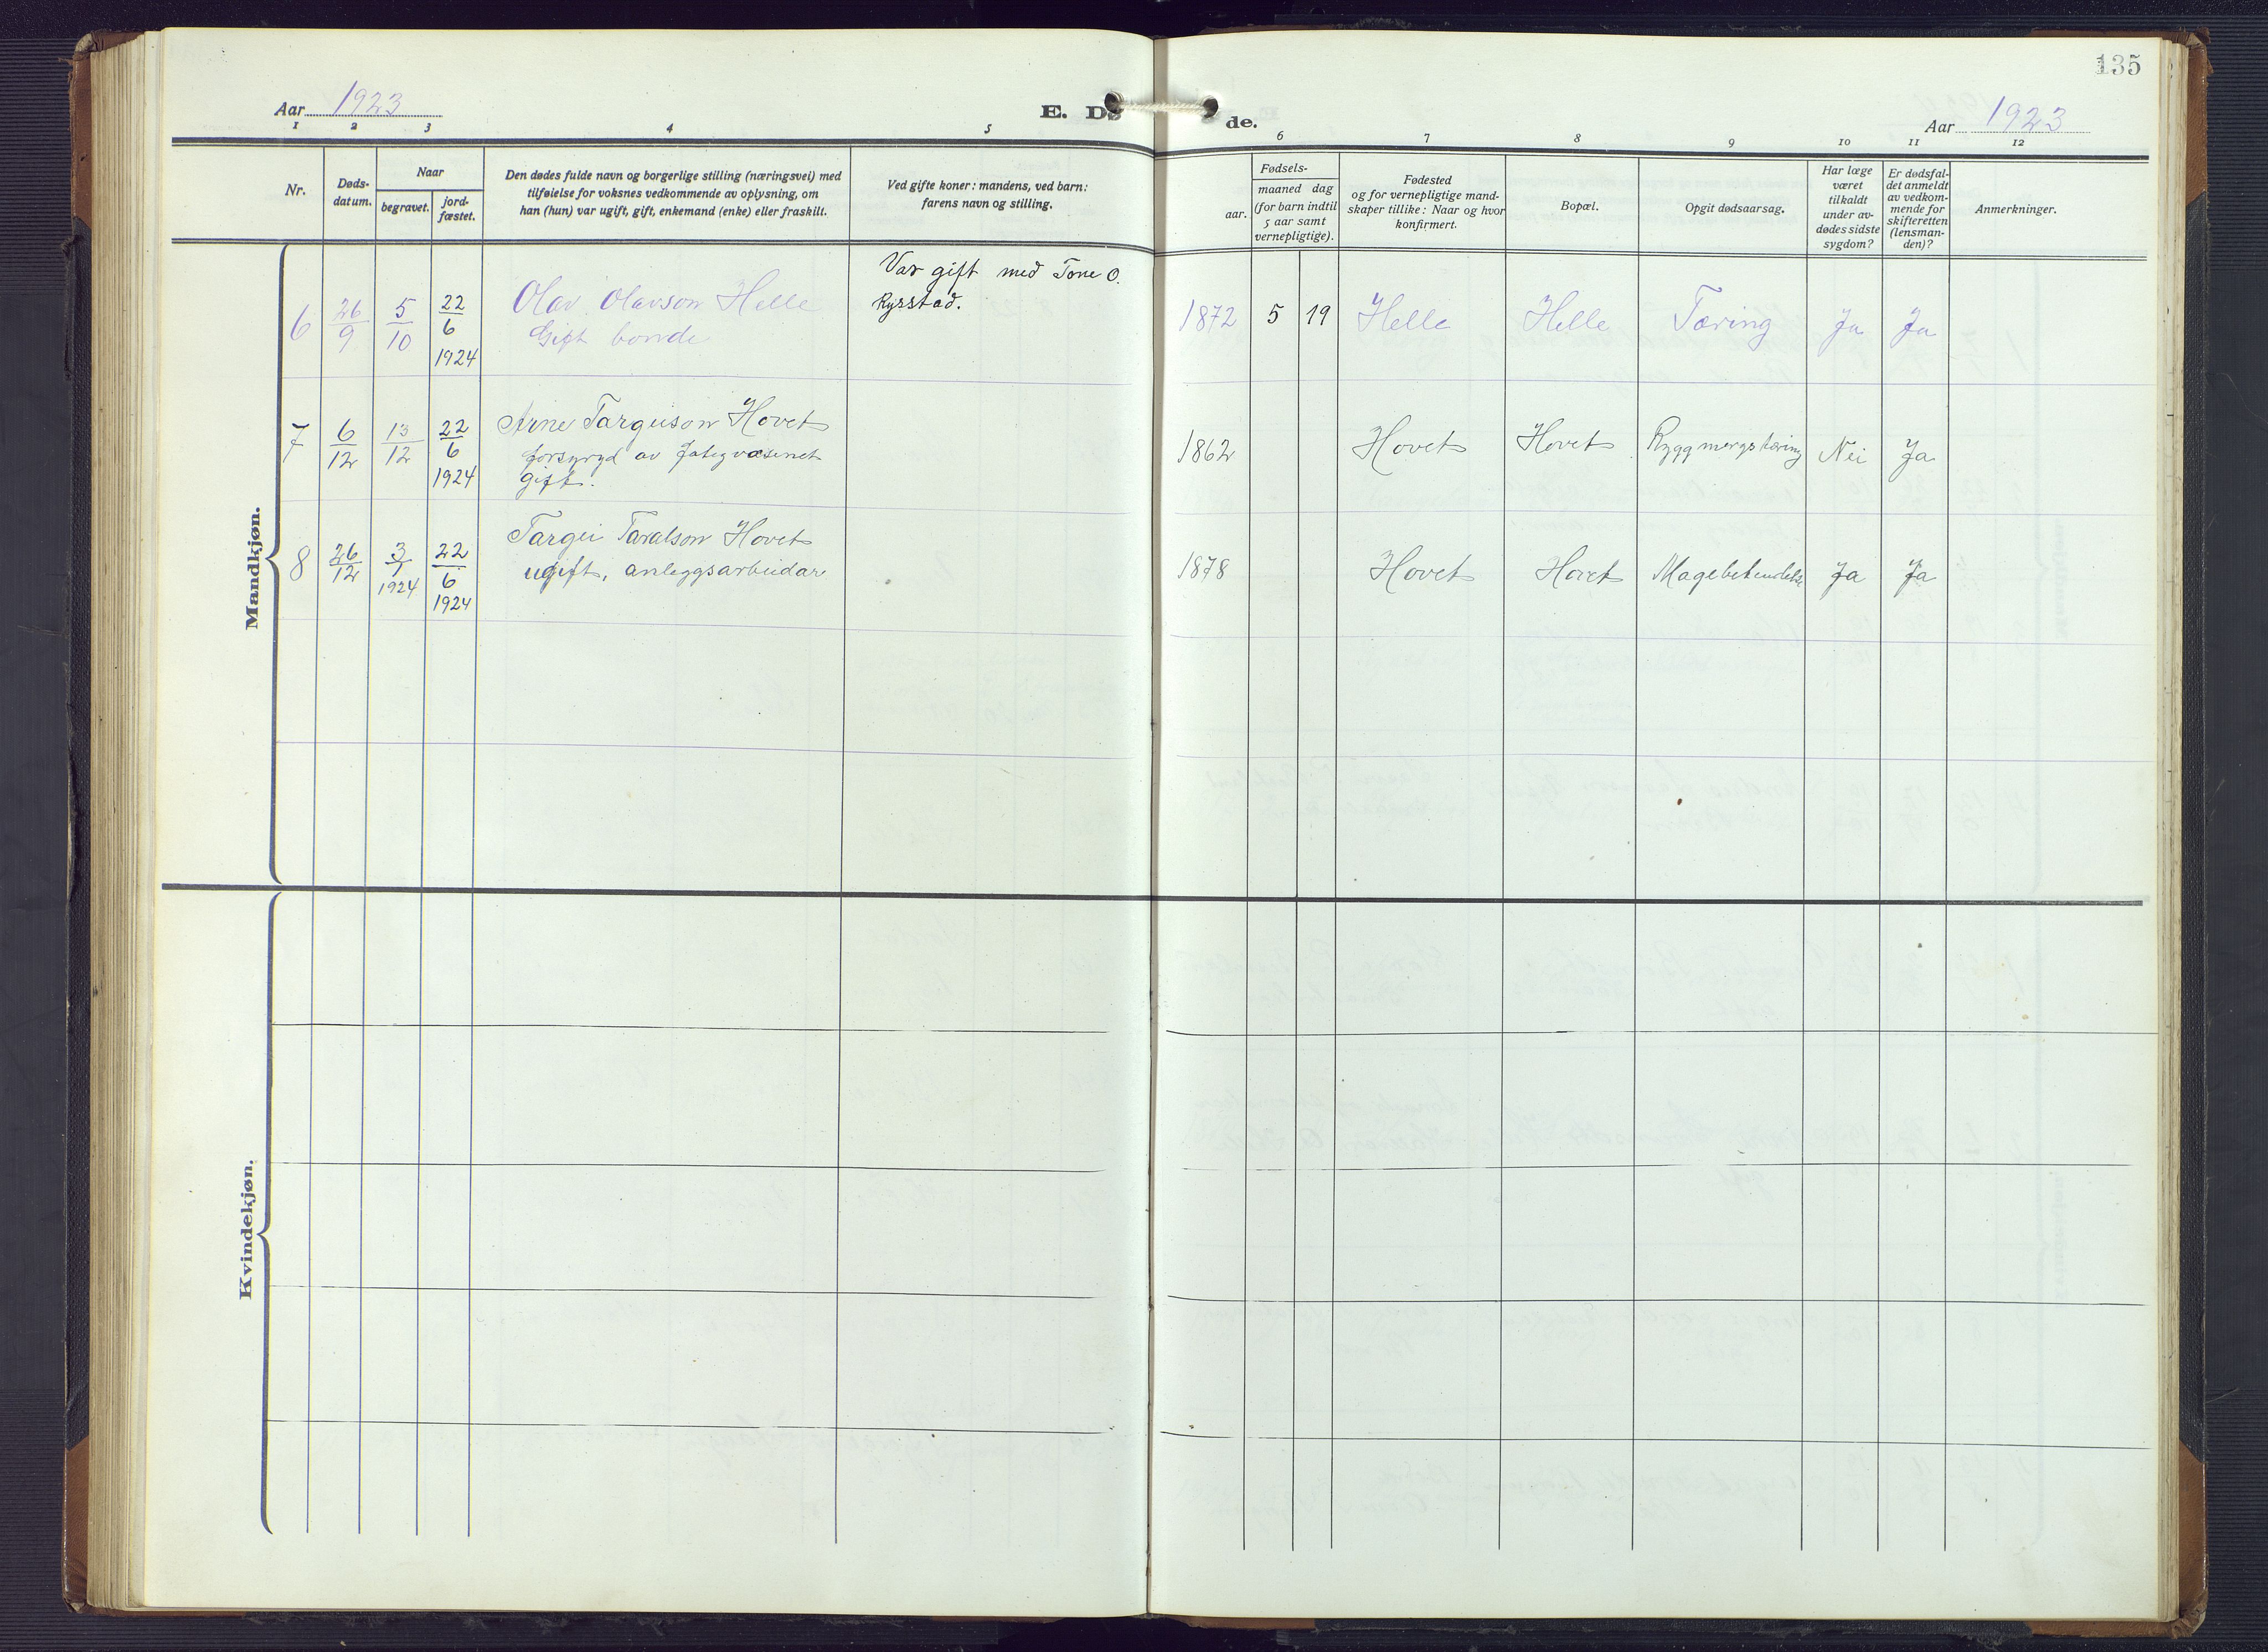 135
Aar 1923
E. Dø
de.
Aar 1923
1 2 3 4 5 6 7 8 9 10 11 12
Nr.
Døds-
datum.
Naar
begravet.
jord-
fæstet.
Den dødes fulde navn og borgerlige stilling (næringsvei) med
tilføielse for voksnes vedkommende av oplysning, om
han (hun) var ugift, gift, enkemand (enke) eller fraskilt.
Ved gifte koner: mandens, ved barn:
farens navn og stilling.
Fødsels-
aar.
maaned dag
(for barn indtil
5 aar samt
vernepligtige).
Fødested
og for vernepligtige mand-
skaper tillike: Naar og hvor
konfirmert.
Bopæl.
Opgit dødsaarsag.
Har læge
været
tilkaldt
under av-
dødes sidste
sygdom?
Er dødsfal-
det anmeldt
av vedkom-
mende for
skifteretten
(lensman-
den)?
Anmerkninger.
Mandkjøn.
6 26/9 5/10 22/6 1924
Olav Olavson Helle
Gift bonde
Var gift med Tone O.
Rysstad.
1872 5 19 Helle Helle Tæring Ja Ja
7 6/12 13/12 22/6 1924
Arne Targeison Hovet
forsyryd av fategvæsenet
gift.
1862 Hovet Hovet Ryggmergstæring Nei Ja
8 26/12 3/1 1924 22/6 1924
Targei Taralson Hovet
ugift, anleggsarbeidar
1878 Hovet Hovet Magebetendelse Ja Ja
Kvindekjøn.